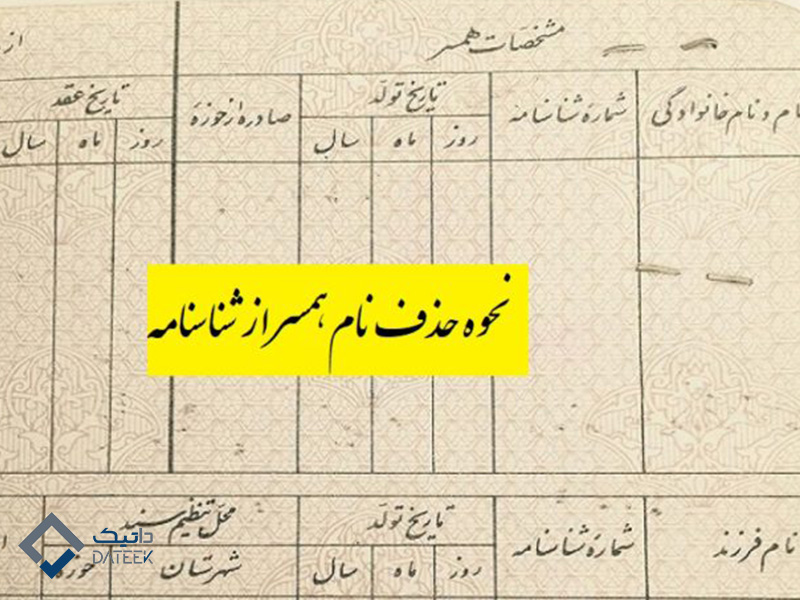 مشخصات همسر
نام خانوادگی
شمارهٔ شناسنامه
تاریخ تولد
صادره از حوزه
تاریخ عقد
روز
ماه
سال
روز
ماه
سال
نحوه حذف نام همسر از شناسنامه
نام فرزند
شمارهٔ شناسنامه
تاریخ تولد
محل تنظیم سند
روز
ماه
سال
شهرستان
حوزه
داتیک
DATEEK